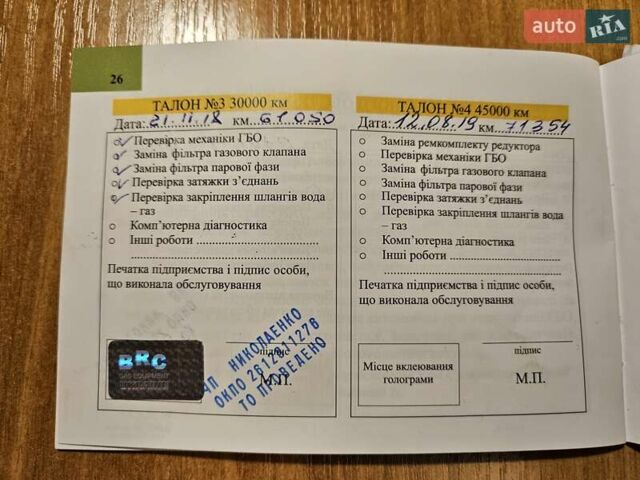 auto RIA .com
26
ТАЛОН №3 30000 км
Дата: 21.11.18 км. 61050
Перевірка механіки ГБО
Заміна фільтра газового клапана
Заміна фільтра парової фази
Перевірка затяжки з’єднань
Перевірка закріплення шлангів вода
– газ
Комп’ютерна діагностика
Інші роботи
Печатка підприємства і підпис особи,
що виконала обслуговування
BRC
GAS EQUIPMENT
НИКОЛАЕНКО
ОКПО 2612011276
ТО ПРОВЕДЕНО
підпис
М.П.
ТАЛОН №4 45000 км
Дата: 12.08.19 км. 71354
Заміна ремкомплекту редуктора
Перевірка механіки ГБО
Заміна фільтра газового клапана
Заміна фільтра парової фази
Перевірка затяжки з’єднань
Перевірка закріплення шлангів вода
– газ
Комп’ютерна діагностика
Інші роботи
Печатка підприємства і підпис особи,
що виконала обслуговування
Місце вклеювання
голограми
підпис
М.П.